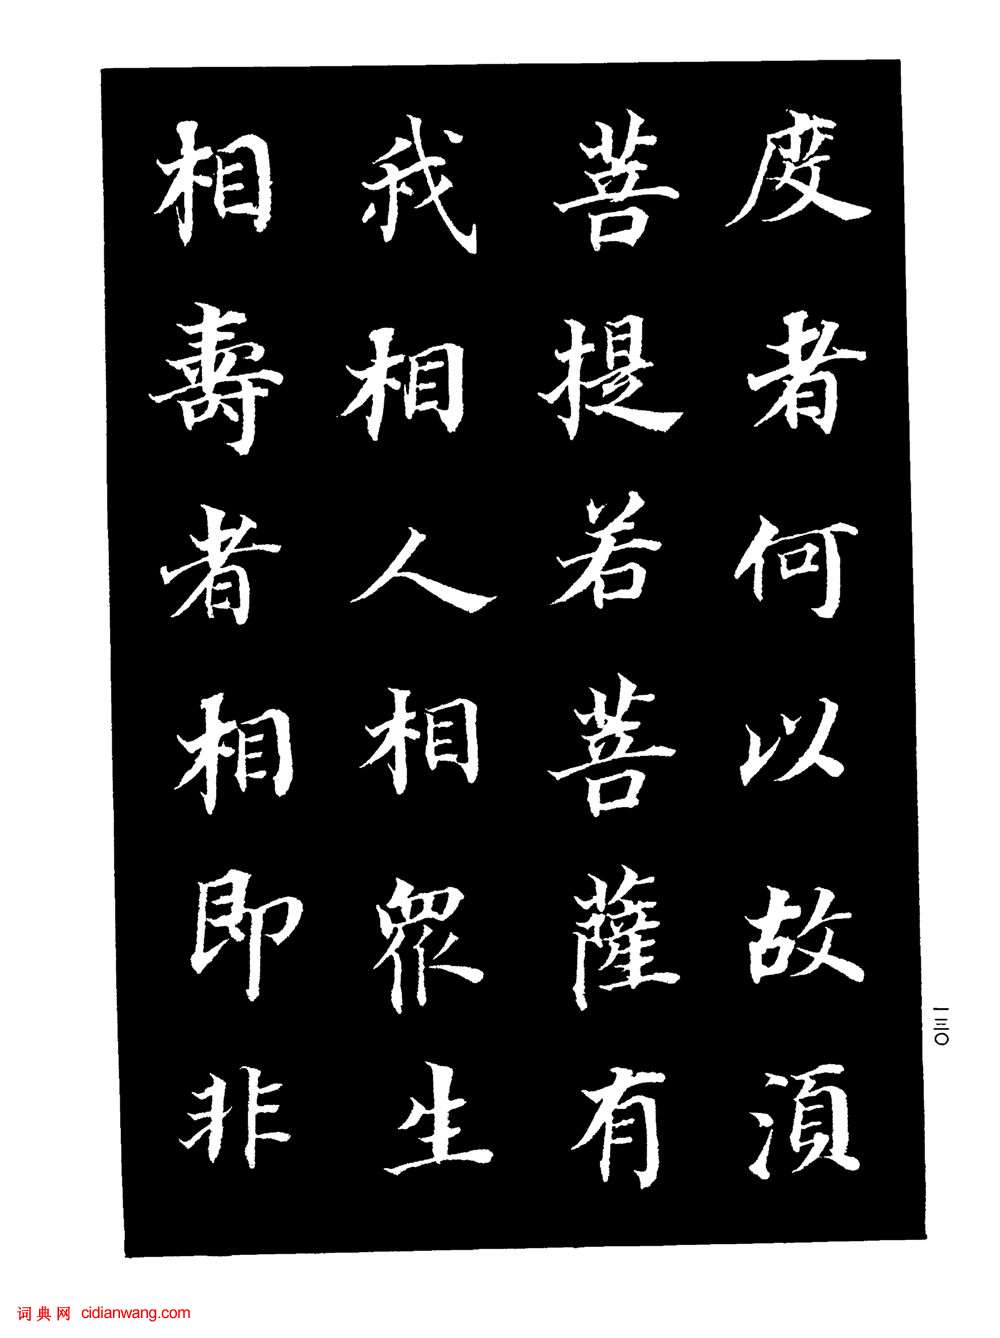 度者何以故湏
菩提若菩薩有
我相人相衆生
相壽者相即非
一三〇
词典网 cidianwang.com